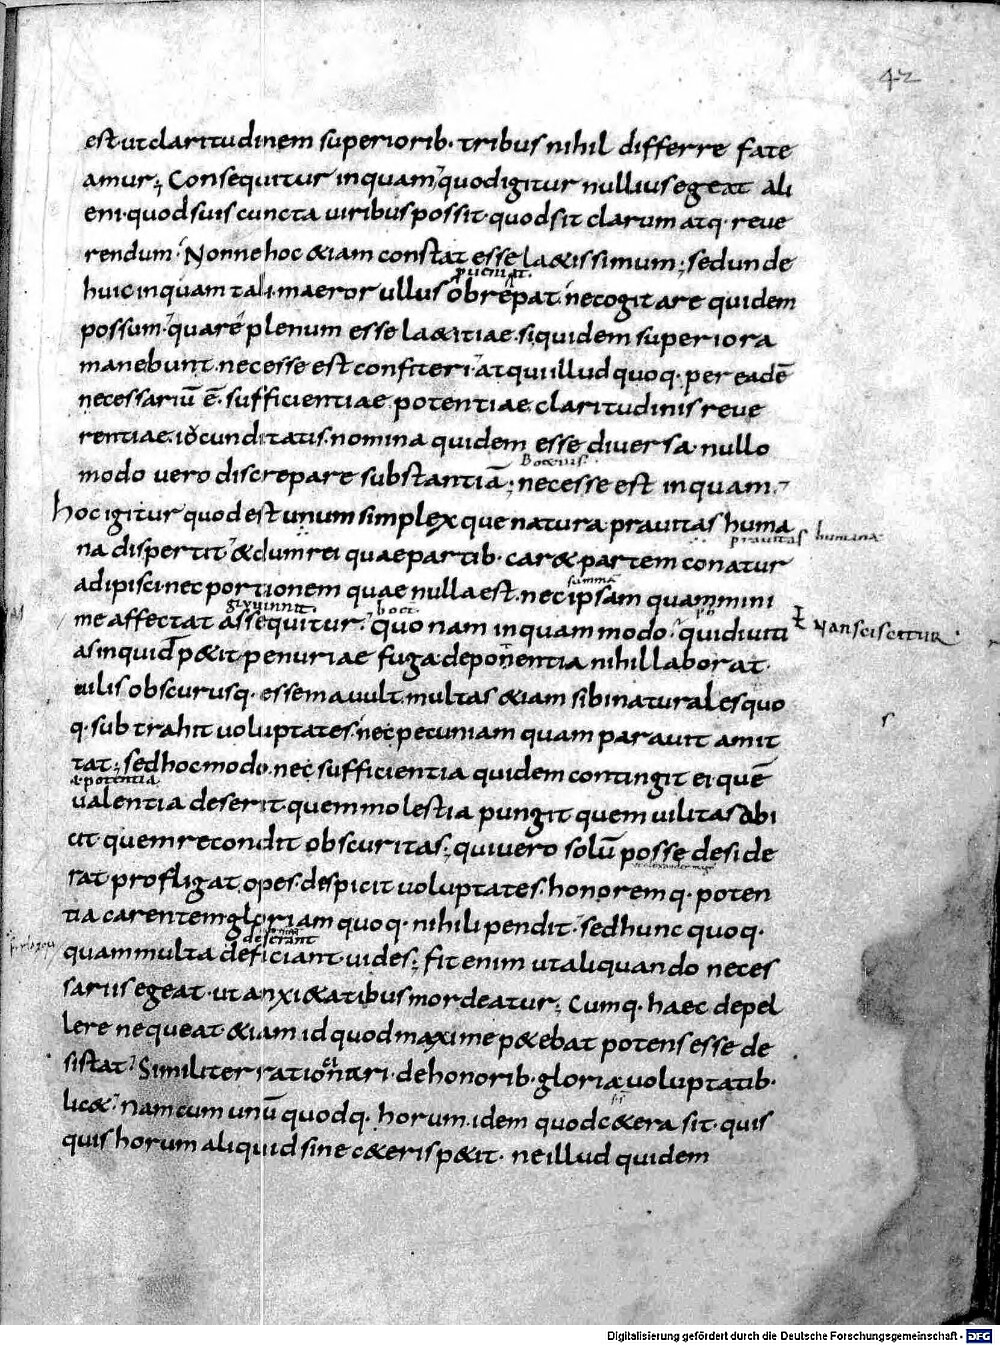 42
est ut claritudinem superiorib· tribus nihil differre fate
amur; Consequitur inquam quod igitur nullius egeat ali
eni· quod suis cuncta uiribus possit· quod sit clarum atq· reue
rendum· Nonne hoc &iam constat esse la&issimum; sed unde
pueniat·
huic inquam tali· maeror ullus obrepat· nec ogitare quidem
possum· quare plenum esse la&itiae· siquidem superiora
manebunt· necesse est confiteri· atqui illud quoq· per eadē
necessariū ē· sufficientiae potentiae claritudinis reue
rentiae· iocunditatis· nomina quidem esse diuersa· nullo
modo uero discrepare substantiā; necesse est inquam·
hoc igitur quod est unum simplexque natura prauitas huma
prauitas humana
na dispertit· &dum rei quae partib· car& partem conatur
summā
adipisci· nec portionem quae nulla est· nec ipsam quam mini
boet·
me affectat assequitur· quo nam inquam modo· qui diuiti
nanciscitur·
as inquid p&it penuriae fuga· deponentia nihil laborat·
uilis obscurusq· esse mauult· multas &iam sibi naturales quo
q· subtrahit uoluptates· nec pecuniam quam parauit amit
tat; sed hoc modo· nec sufficientia quidem contingit ei quē
a potentia
ualentia deserit· quem molestia pungit quem uilitas abi
cit quem recondit obscuritas; qui uero solū posse deside
rat profligat opes· despicit uoluptates· honoremq· poten
tia carentem gloriam quoq· nihili pendit· sed hunc quoq·
deserant
quam multa deficiant uides; fit enim ut aliquando neces
sariis egeat· ut anxi&atibus mordeatur; Cumq· haec depel
lere nequeat &iam id quod maxime p&ebat potens esse de
sistat· Similiter rationari· de honorib· gloria uoluptatib·
lic&· Nam cum unū quodq· horum· idem quod c&era sit· quis
quis horum aliquid sine c&eris p&it· ne illud quidem
Digitalisierung gefördert durch die Deutsche Forschungsgemeinschaft - DFG